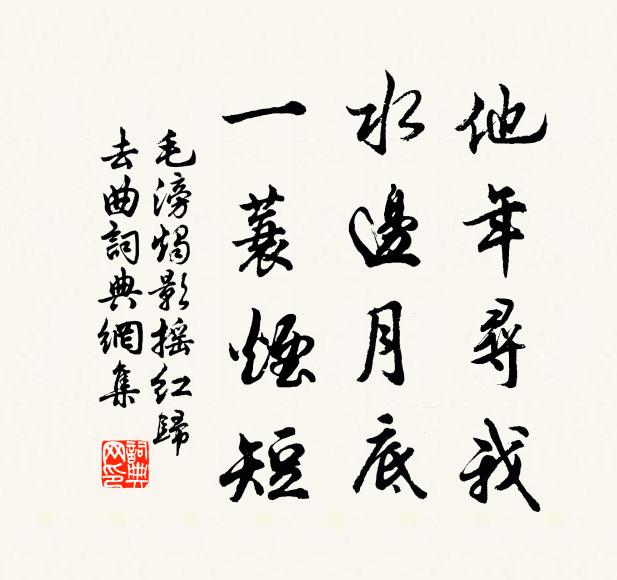 他年尋我
水邊月底
一蓑煙短
毛滂燭影摇紅歸
去曲詞典網集
詞典
网印